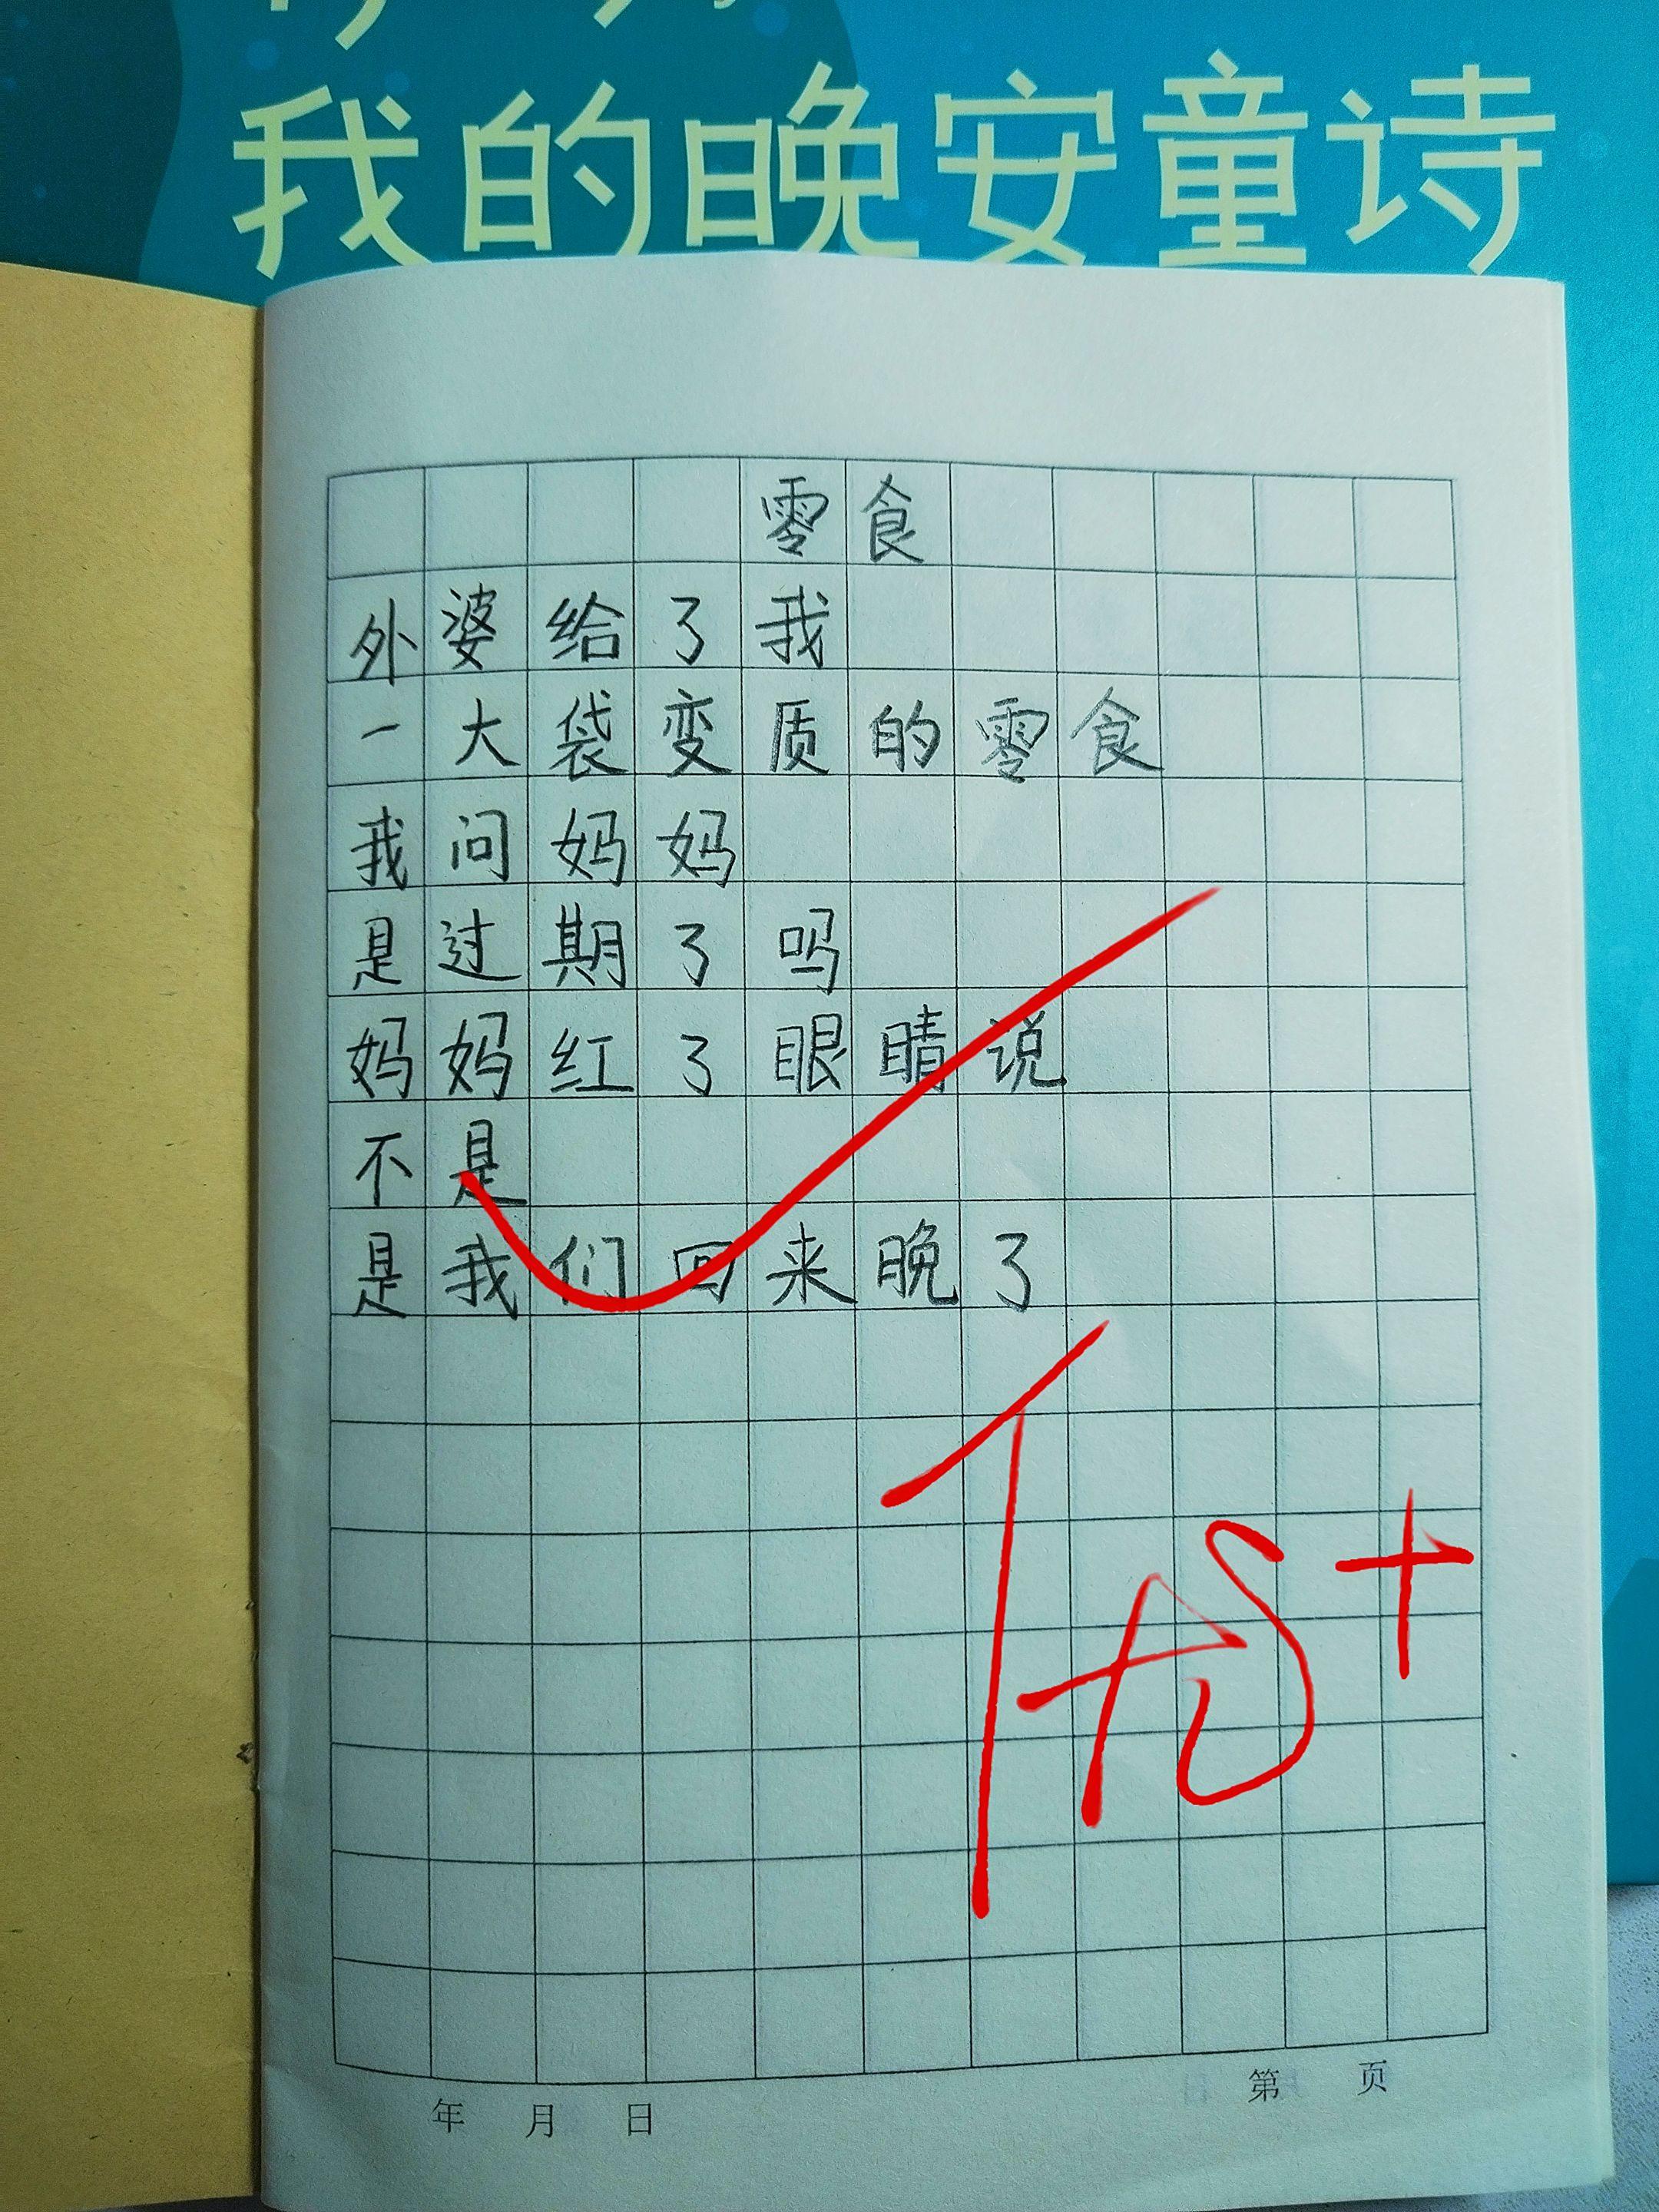 我的晚安童诗
零食
外婆给了我
一大袋变质的零食
我问妈妈
是过期了吗
妈妈红了眼睛说
不是
是我们回来晚了
年 月 日
第 页